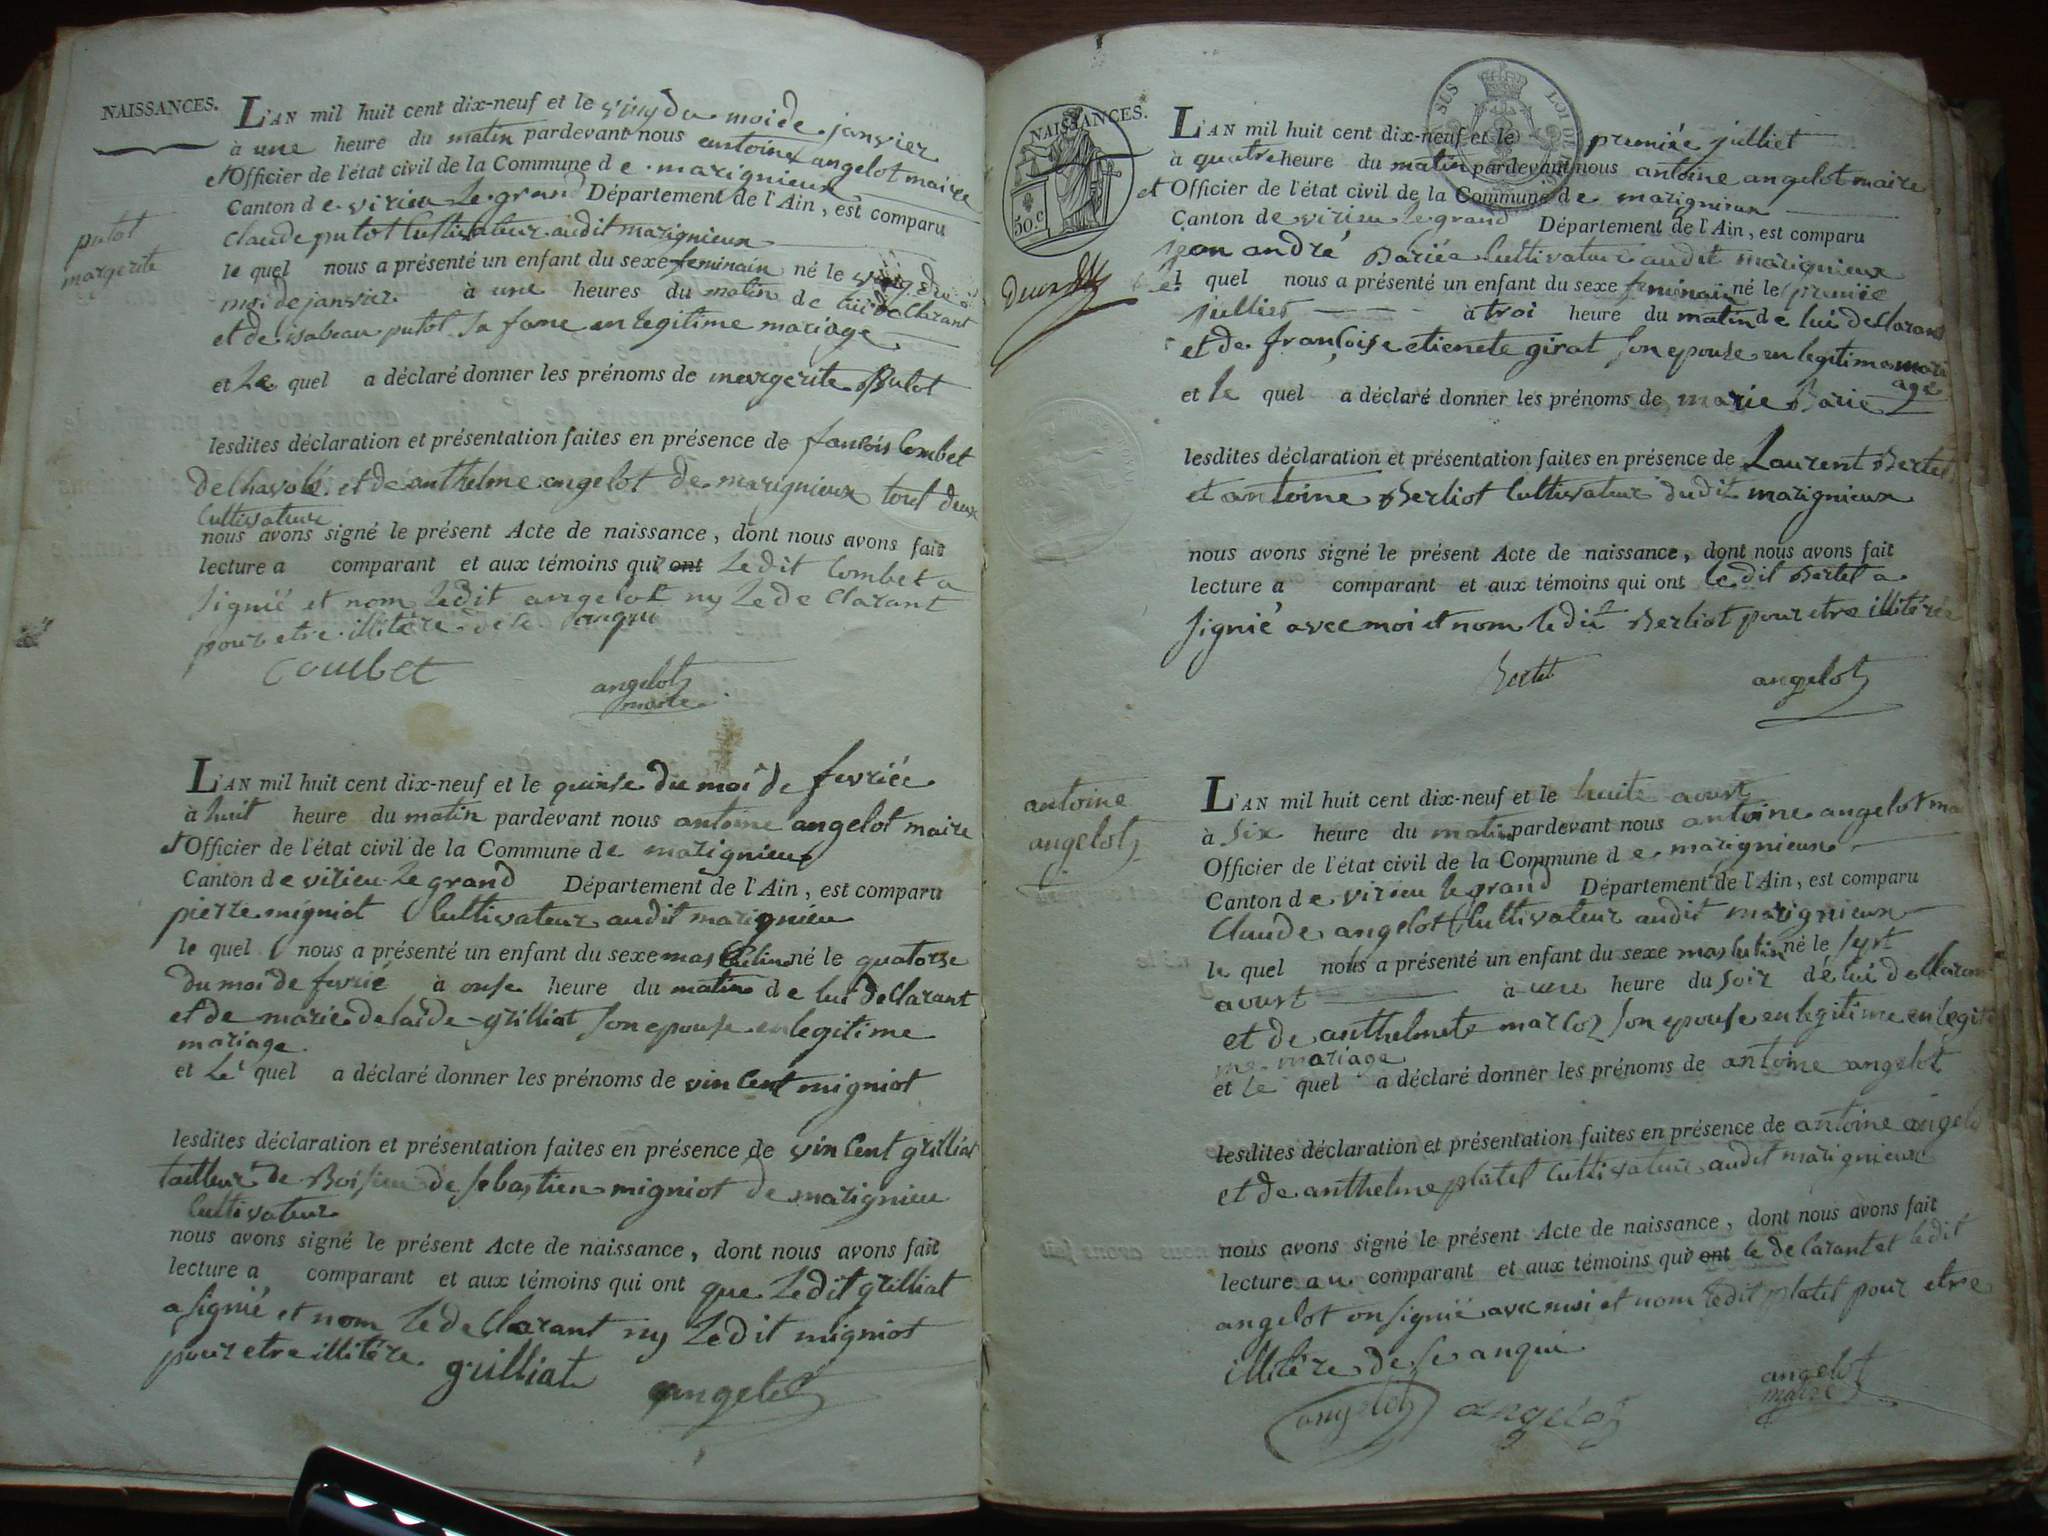 NAISSANCES.
L'AN mil huit cent dix-neuf et le du moi de janvier
à une heure du matin pardevant nous antoine angelot maire
et Officier de l'état civil de la Commune de marignieux
Canton de virieu Le grand Département de l'Ain, est comparu
putot
margerite
Claude putot Cultivateur audit marignieux
le quel nous a présenté un enfant du sexe feminain né le du
moi de janvier à une heures du matin de lui declarant
et de isabeau putot sa fame en legitime mariage
et Le quel a déclaré donner les prénoms de margerite Putot
lesdites déclaration et présentation faites en présence de Combet
et de anthelme angelot de marignieux tout deux
Cultivateur
nous avons signé le présent Acte de naissance, dont nous avons fait
lecture a comparant et aux témoins qui ont Ledit Combet a
signié et nom Ledit angelot ny Le de Clarant
pour etre illitére de se anqui
Combet
angelot
maire
L'AN mil huit cent dix-neuf et le quinse du moi de fevriée
à huit heure du matin pardevant nous antoine angelot maire
et Officier de l'état civil de la Commune de marignieux
Canton de virieu Le grand Département de l'Ain, est comparu
pierre migniot Cultivateur audit marignieu
le quel nous a présenté un enfant du sexe masculin né le quatorse
du moi de fevrié à onse heure du matin de lui de Clarant
et de marie delaide grilliat son epouse en legitime
mariage
et Le quel a déclaré donner les prénoms de vin Cent migniot
lesdites déclaration et présentation faites en présence de vin Cent grilliat
tailleur de de sebastien migniot de marignieu
Cultivateur
nous avons signé le présent Acte de naissance, dont nous avons fait
lecture a comparant et aux témoins qui ont que Ledit grilliat
a signié et nom Le de Clarant ny Ledit migniot
pour etre illitére.
grilliat
angelot
NAISSANCES.
50.c
SUS LOI DE
L'AN mil huit cent dix-neuf et le première julliet
à quatre heure du matin pardevant nous antoine angelot maire
et Officier de l'état civil de la Commune de marignieux
Canton de virieu Le grand Département de l'Ain, est comparu
jean andré Bariée Cultivateur audit marignieux
le quel nous a présenté un enfant du sexe feminain né le premiée
julliet à troi heure du matin de lui de Clarant
et de françoise etienete girat son epouse en legitime mari
age
et le quel a déclaré donner les prénoms de marie Barie
lesdites déclaration et présentation faites en présence de Laurent Bertet
et antoine Berliot Cultivateur dudit marignieux
nous avons signé le présent Acte de naissance, dont nous avons fait
lecture a comparant et aux témoins qui ont le dit Bertet a
signié avec moi et nom le dit Berliot pour etre illitérée
Bertet
angelot
antoine
angelot
L'AN mil huit cent dix-neuf et le huite avust
à six heure du matin pardevant nous antoine angelot ma
Officier de l'état civil de la Commune de marignieux
Canton de virieu le grand Département de l'Ain, est comparu
Claude angelot Cultivateur audit marignieux
le quel nous a présenté un enfant du sexe masculin né le sept
avust à une heure du soir de lui de Clarant
et de anthelmete marloz son epouse en legitime en legiti
me mariage
et le quel a déclaré donner les prénoms de antoine angelot
lesdites déclaration et présentation faites en présence de antoine angelo
et de anthelme platet Cultivateur audit marignieux
nous avons signé le présent Acte de naissance, dont nous avons fait
lecture au comparant et aux témoins qui ont le de Clarant et ledit
angelot on signié avec moi et nom ledit platet pour etre
illitére de se anqui
angelot angelot
angelot
maire